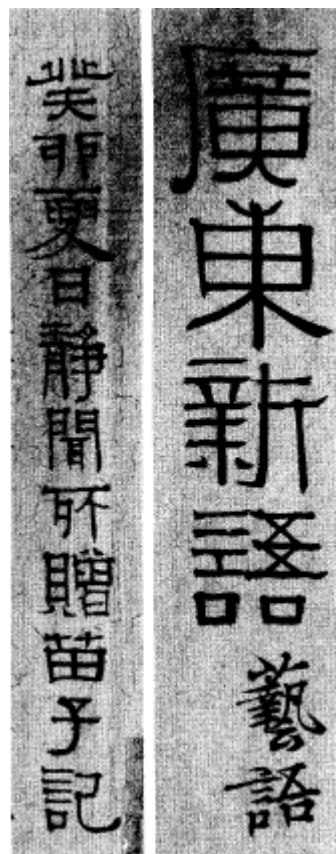 廣東新語 藝語
癸卯夏日靜聞所贈苗子記